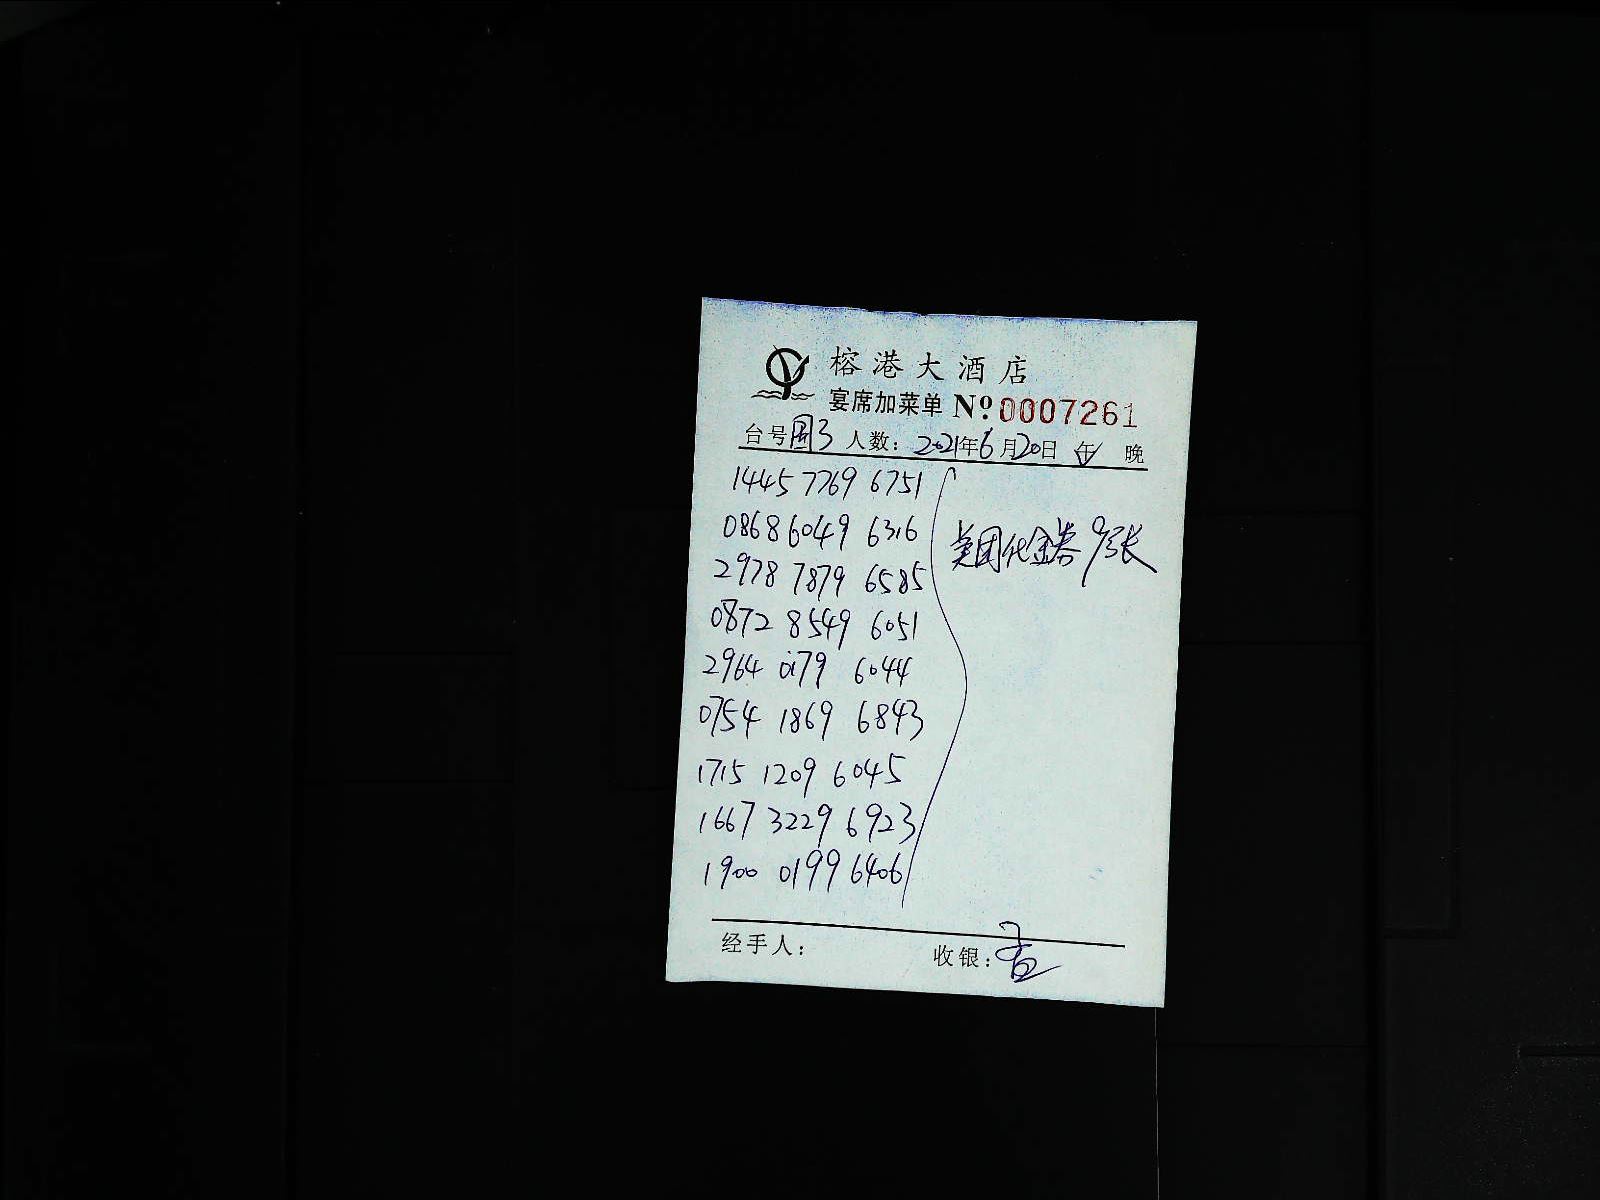 榕港大酒店
宴席加菜单 Nº 0007261
台号 3 人数: 2021年6月20日 午 晚
1445 7769 6751
0868 6049 6316
美团代金券9张
2978 7879 6585
0872 8549 6051
2964 0179 6044
0754 1869 6843
1715 1209 6045
1667 3229 6923
1900 0199 6406
经手人: 收银: